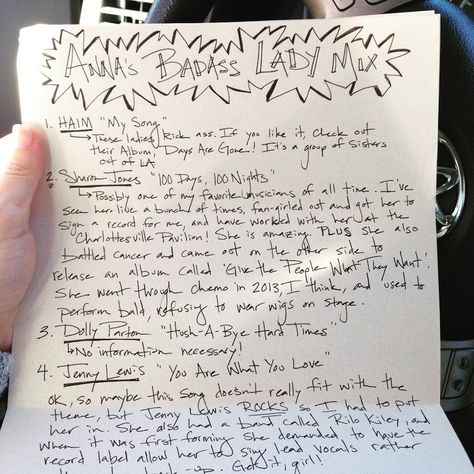 ANNA'S BADASS LADY MIX
1. HAIM "My Song"
→ These ladies kick ass. If you like it, check out
their Album, Days Are Gone! It's a group of sisters
out of LA
2. Sharon Jones "100 Days, 100 Nights"
→ Possibly one of my favorite musicians of all time. I've
seen her like a bunch of times, fan-girled out and got her to
sign a record for me, and have worked with her at the
Charlottesville Pavilion! She is amazing. PLUS she also
battled cancer and came out on the other side to
release an album called 'Give the People What They Want'.
She went through chemo in 2013, I think, and used to
perform bald, refusing to wear wigs on stage.
3. Dolly Parton "Hush-A-Bye Hard Times"
↳ No information necessary!
4. Jenny Lewis "You Are What You Love"
OK, so maybe this song doesn't really fit with the
theme, but Jenny Lewis ROCKS so I had to put
her in. She also had a band called Rilo Kiley, and
when it was first forming she demanded to have the
record label allow her to sing lead vocals rather
than back-up. Get it, girl